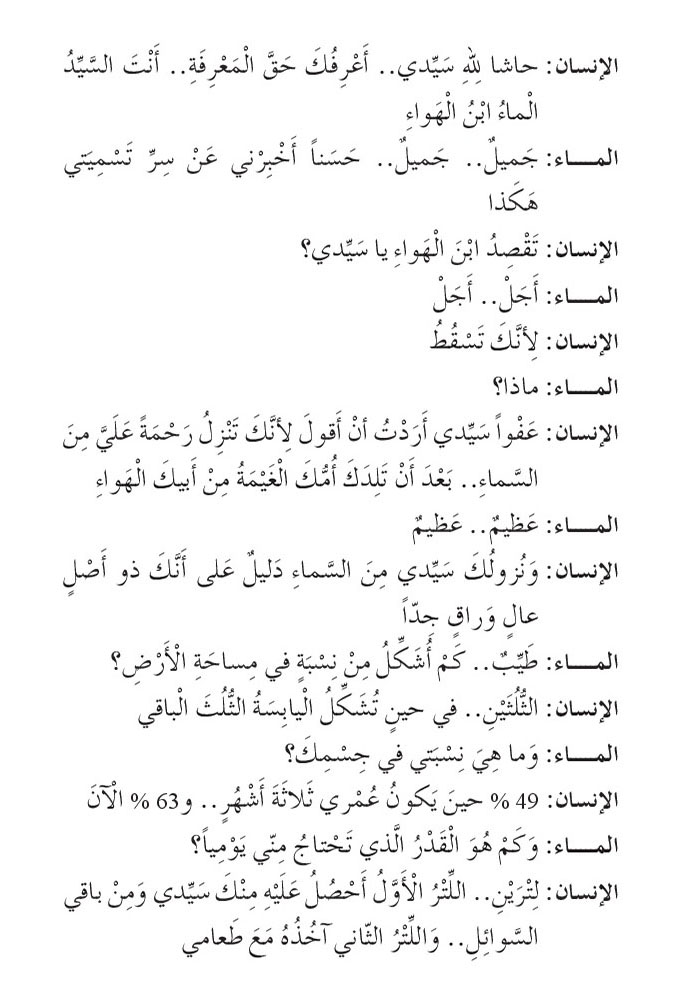 الإنسان: حاشا لِلّٰهِ سَيِّدي.. أَعْرِفُكَ حَقَّ الْمَعْرِفَةِ.. أَنْتَ السَّيِّدُ
الْماءُ ابْنُ الْهَواءِ
المـــاء: جَميلٌ.. جَميلٌ.. حَسَناً أَخْبِرْني عَنْ سِرِّ تَسْمِيَتي
هَكَذا
الإنسان: تَقْصِدُ ابْنَ الْهَواءِ يا سَيِّدي؟
المـــاء: أَجَلْ.. أَجَلْ
الإنسان: لِأَنَّكَ تَسْقُطُ
المـــاء: ماذا؟
الإنسان: عَفْواً سَيِّدي أَرَدْتُ أنْ أَقولَ لِأَنَّكَ تَنْزِلُ رَحْمَةً عَلَيَّ مِنَ
السَّماءِ.. بَعْدَ أَنْ تَلِدَكَ أُمُّكَ الْغَيْمَةُ مِنْ أَبيكَ الْهَواءِ
المـــاء: عَظيمٌ.. عَظيمٌ
الإنسان: وَنُزولُكَ سَيِّدي مِنَ السَّماءِ دَليلٌ عَلى أَنَّكَ ذو أَصْلٍ
عالٍ وَراقٍ جِدّاً
المـــاء: طَيِّبٌ.. كَمْ أُشَكِّلُ مِنْ نِسْبَةٍ في مِساحَةِ الْأَرْضِ؟
الإنسان: الثُّلُثَيْنِ.. في حينٍ تُشَكِّلُ الْيابِسَةُ الثُّلثَ الْباقي
المـــاء: وَما هِيَ نِسْبَتي في جِسْمِكَ؟
الإنسان: 49 % حينَ يَكونُ عُمْري ثَلاثَةَ أَشْهُرٍ.. و63 % الْآنَ
المـــاء: وَكَمْ هُوَ الْقَدْرُ الَّذي تَحْتاجُ مِنّي يَوْمِياً؟
الإنسان: لِتْرَيْنِ.. اللِّتْرُ الْأَوَّلُ أَحْصُلُ عَلَيْهِ مِنْكَ سَيِّدي وَمِنْ باقي
السَّوائِلِ.. وَاللِّتْرُ الثّاني آخُذُهُ مَعَ طَعامي